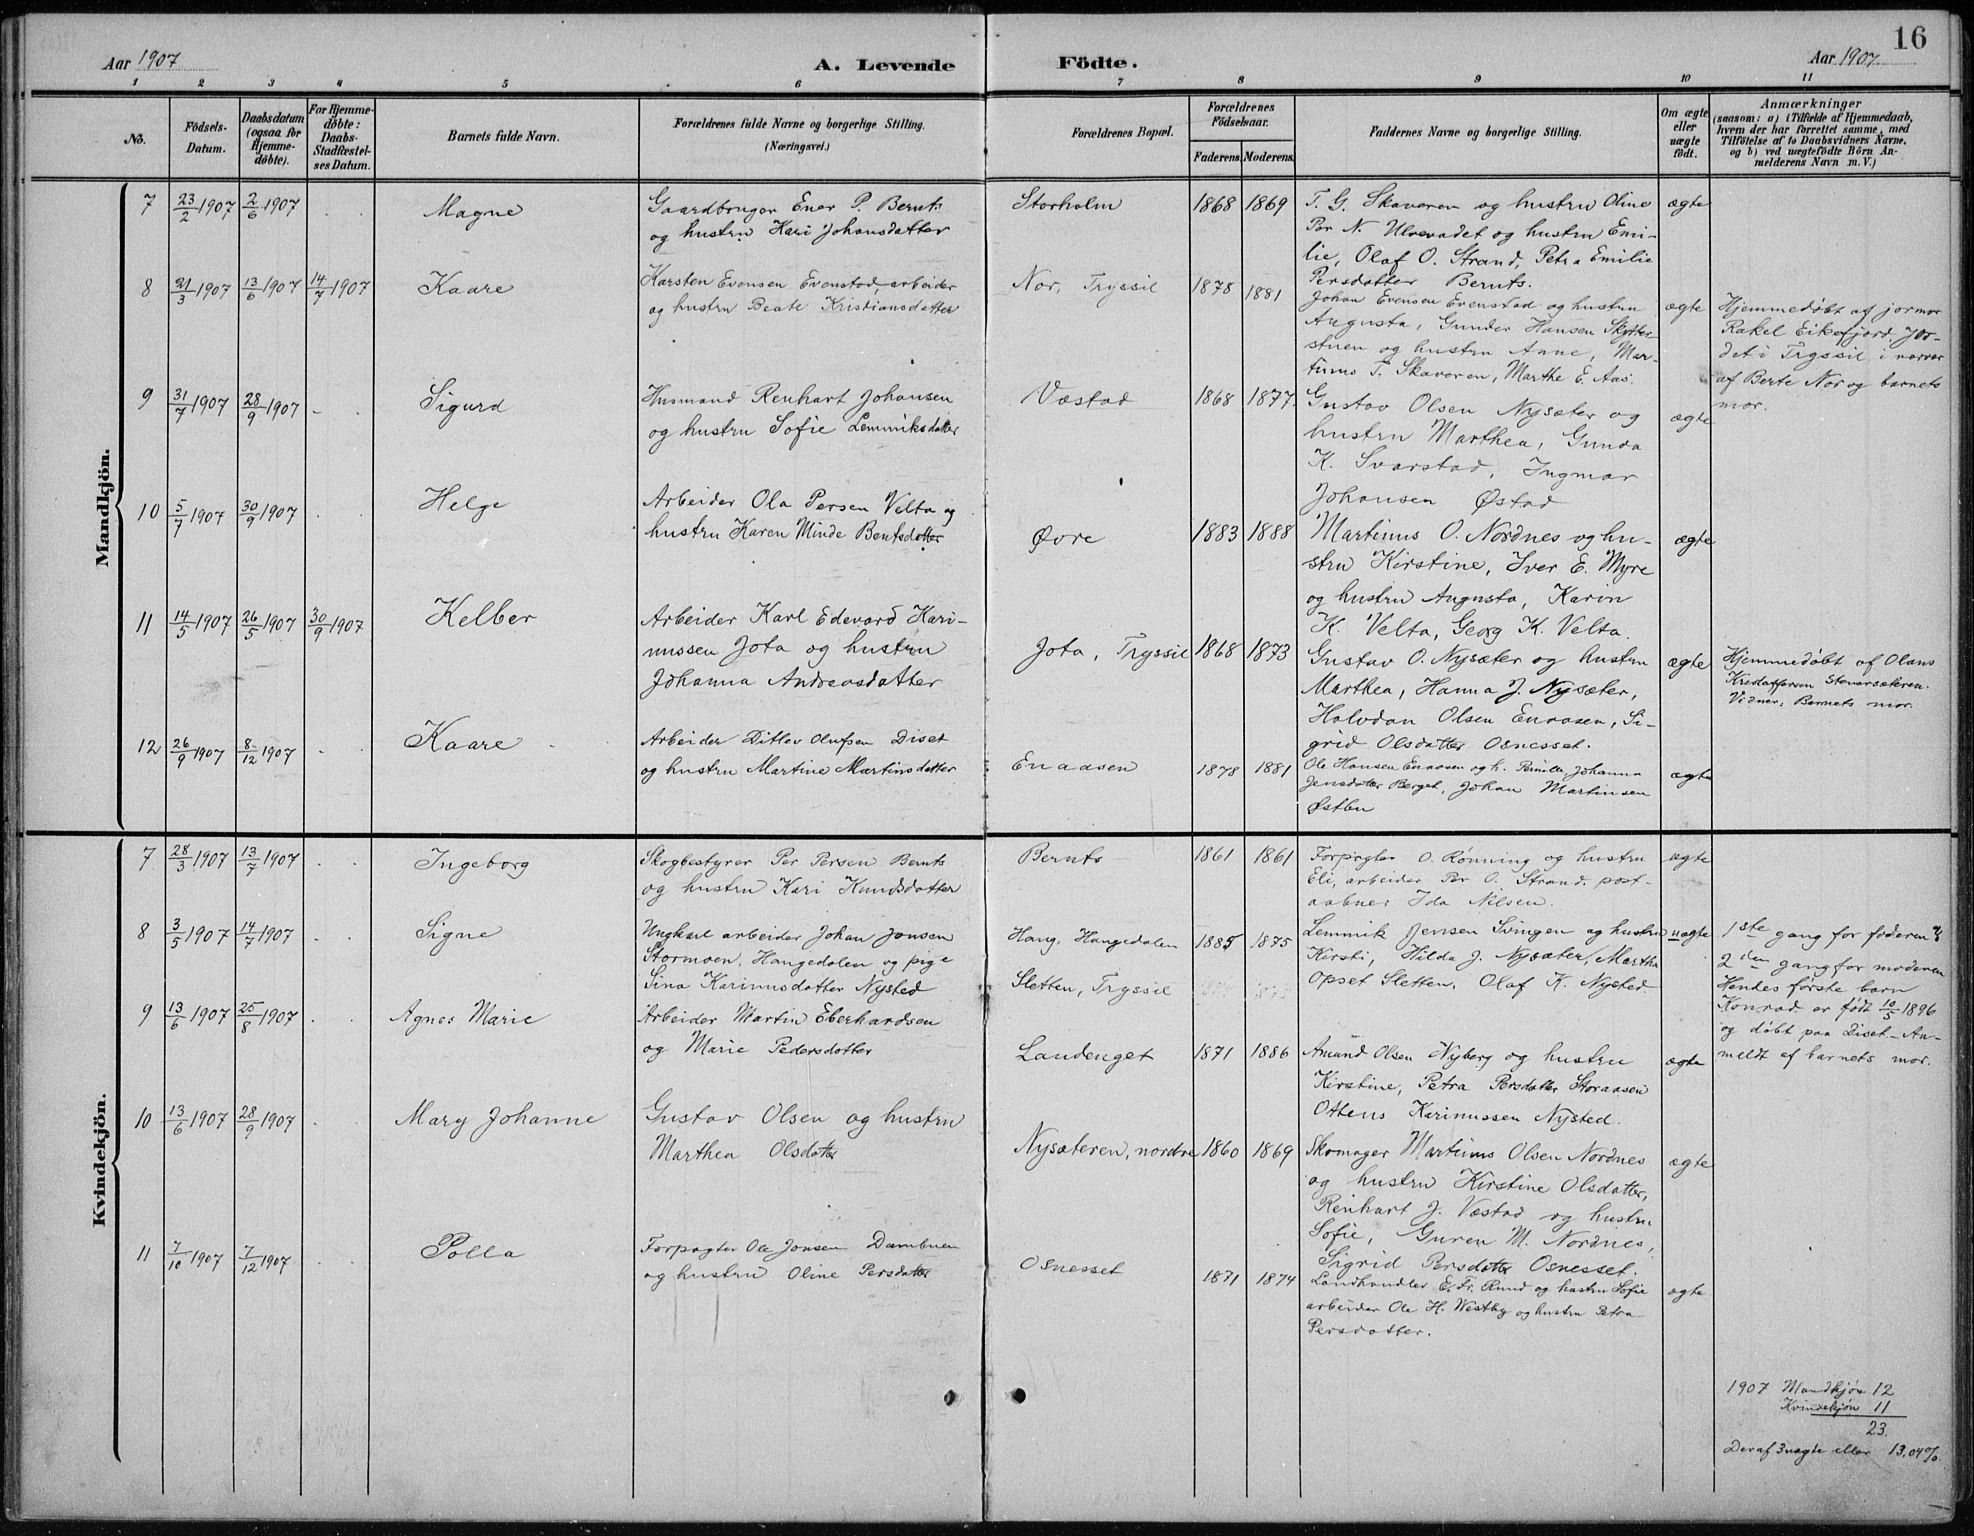 16
Aar 1907
A. Levende Födte.
Aar 1907
1 2 3 4 5 6 7 8 9 10 11
No.
Födsels-Datum.
Daabsdatum (ogsaa for Hjemmedöbte).
For Hjemmedöbte: Daabs-Stadfæstelses Datum.
Barnets fulde Navn.
Forældrenes fulde Navne og borgerlige Stilling. (Næringsvei.)
Forældrenes Bopæl.
Forældrenes Födselsaar.
Faderens. Moderens.
Faddernes Navne og borgerlige Stilling.
Om ægte eller uægte födt.
Anmærkninger
(saasom: a) i Tilfælde af Hjemmedaab, hvem der har forrettet samme, med Tilföielse af to Daabsvidners Navne, og b) ved uægtefödte Börn Anmelderens Navn m. V.)
Mandkjön.
7 23/2 1907 2/6 1907 Magne
Gaardbruger Ener P. Bernts
og hustru Kari Johansdatter
Storholm 1868 1869
T. G. Skaveren og hustru Oline
Per N. Ulvevadet og hustru Emi-
lie, Olaf O. Strand, Petra Emilie
Persdatter Bernts.
ægte
8 21/3 1907 13/6 1907 14/7 1907 Kaare
Karsten Evensen Evenstad, arbeider
og hustru Beate Kristiansdatter
Nor, Tryssil 1878 1881
Johan Evensen Evenstad og hustru
Augusta, Gunder Hansen Skytter-
stuen og hustru Anne, Mar-
tinus T. Skaveren, Marthe E. Aas.
ægte
Hjemmedøbt af jormor
Rakel Eikefjord, Jor-
det i Tryssil i nærvær
af Berte Nor og barnets
mor.
9 31/7 1907 28/9 1907 Sigurd
Husmand Renhart Johansen
og hustru Sofie Lemmiksdatter
Væstad 1868 1877
Gustav Olsen Nysæter og
hustru Marthea, Gunda
K. Svarstad, Ingmar
Johansen Østad
ægte
10 5/7 1907 30/9 1907 Helge
Arbeider Ola Persen Velta og
hustru Karen Minde Bentsdatter
Øvre 1883 1888
Martinus O. Nordnes og hu-
stru Kirstine, Iver E. Myre
og hustru Augusta, Karin
K. Velta, Georg K. Velta.
ægte
11 14/5 1907 26/5 1907 30/9 1907 Kelber
Arbeider Karl Edevard Kari-
nussen Jota og hustru
Johanna Andreasdatter
Jota, Tryssil 1868 1873
Gustav O. Nysæter og hustru
Marthea, Hanna J. Nysæter,
Halvdan Olsen Enaasen, Si-
grid Olsdatter Osnesset.
ægte
Hjemmedøbt af Olaus
Kristoffersen Stenersæteren.
Vidner: Barnets mor.
12 26/9 1907 8/12 1907 Kaare
Arbeider Ditlev Olufsen Diset
og hustru Martine Martinsdatter
Enaasen 1878 1881
Ole Hansen Enaasen og h. Pernille, Johanna
Jensdatter Berget, Johan Martinsen
Østbu
ægte
Kvindekjön.
7 28/3 1907 13/7 1907 Ingeborg
Skogbestyrer Per Persen Bernts
og hustru Kari Knudsdatter
Bernts 1861 1861
Forpagter O. Rønning og hustru
Eli, arbeider Per O. Strand, post-
aabner Ida Nilsen.
ægte
8 3/5 1907 14/7 1907 Signe
Ungkarl arbeider Johan Jonsen
Stormoen, Hangedalen og pige
Sina Karinusdatter Nysted
Hang, Hangedalen 1885 1875
Sletten, Tryssil
Lemmik Jensen Svingen og hustru
Kirsti, Hilda J. Nysæter, Martha
Opset Sletten, Olaf K. Nysted
uægte
1ste gang for faderen &
2den gang for moderen
Hendes første barn
Konrad er født 10/5 1896
og døbt paa Diset. An-
meldt af barnets mor.
9 13/6 1907 25/8 1907 Agnes Marie
Arbeider Martin Eberhardsen
og Marie Pedersdatter
Landenget 1871 1886
Amund Olsen Nyberg og hustru
Kirstine, Petra Persdatter Storaasen
Ottens Karinussen Nysted.
ægte
10 13/6 1907 28/9 1907 Mary Johanne
Gustav Olsen og hustru
Marthea Olsdatter
Nysæteren, nordre 1860 1869
Skomager Martinus Olsen Nordnes
og hustru Kirstine Olsdatter,
Reinhart J. Væstad og hustru
Sofie, Guren M. Nordnes,
Sigrid Persdatter Osnesset.
ægte
11 7/10 1907 7/12 1907 Polla
Forpagter Ole Jonsen Dambuen
og hustru Oline Persdatter
Osnesset 1871 1874
Landhandler E. Fr. Rund og hustru Sofie
arbeider Ole H. Westby og hustru Petra
Persdatter.
ægte
1907 Mandkjøn 12
Kvindekjøn 11
23.
Deraf 3 uægte eller 13.04%.